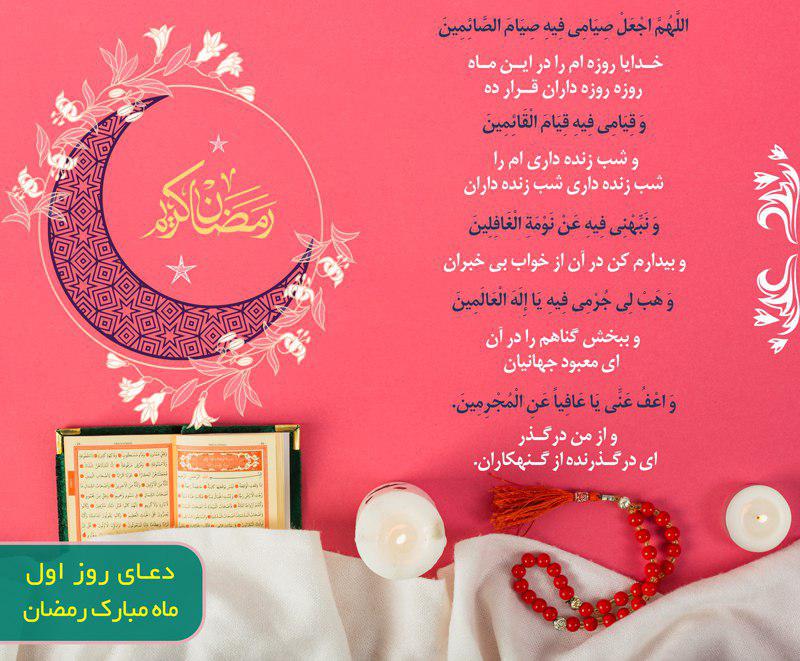 اللَّهُمَّ اجْعَلْ صِيَامِى فِيهِ صِيَامَ الصَّائِمِينَ
خـدایا روزه ام را در ایـن مـاه
روزه روزه داران قـرار ده
وَ قِيَامِى فِيهِ قِيَامَ الْقَائِمِينَ
و شب زنده داری ام را
شب زنده داری شب زنده داران
وَ نَبِّهْنِى فِيهِ عَنْ نَوْمَةِ الْغَافِلِينَ
و بیدارم کن در آن از خواب بی خبران
وَ هَبْ لِى جُرْمِى فِيهِ يَا إِلَهَ الْعَالَمِينَ
و ببخش گناهم را در آن
ای معبود جهانیان
وَ اعْفُ عَنِّى يَا عَافِياً عَنِ الْمُجْرِمِينَ.
و از من درگـذر
ای درگـذرنده از گـنهکاران.
رَمَضَان كريم
دعـای روز اول
ماه مبارک رمضان